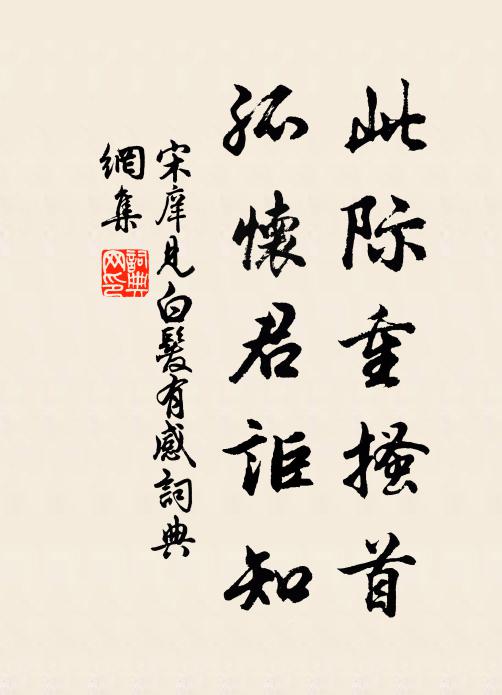 此际重搔首
孤懷君詎知
宋庠見白髮有感詞典
網集
詞典
网印